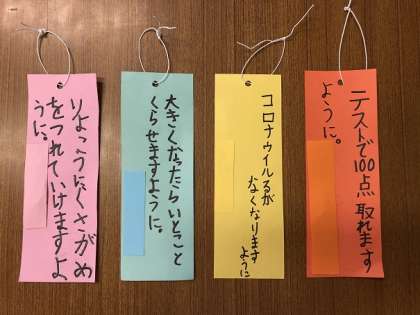 テストで100点取れます
ように。
コロナウイルるが
なくなります
ように
大きくなったらいとこと
くらせきますように。
りょこうにくさがめ
をつれていけますよ
うに。